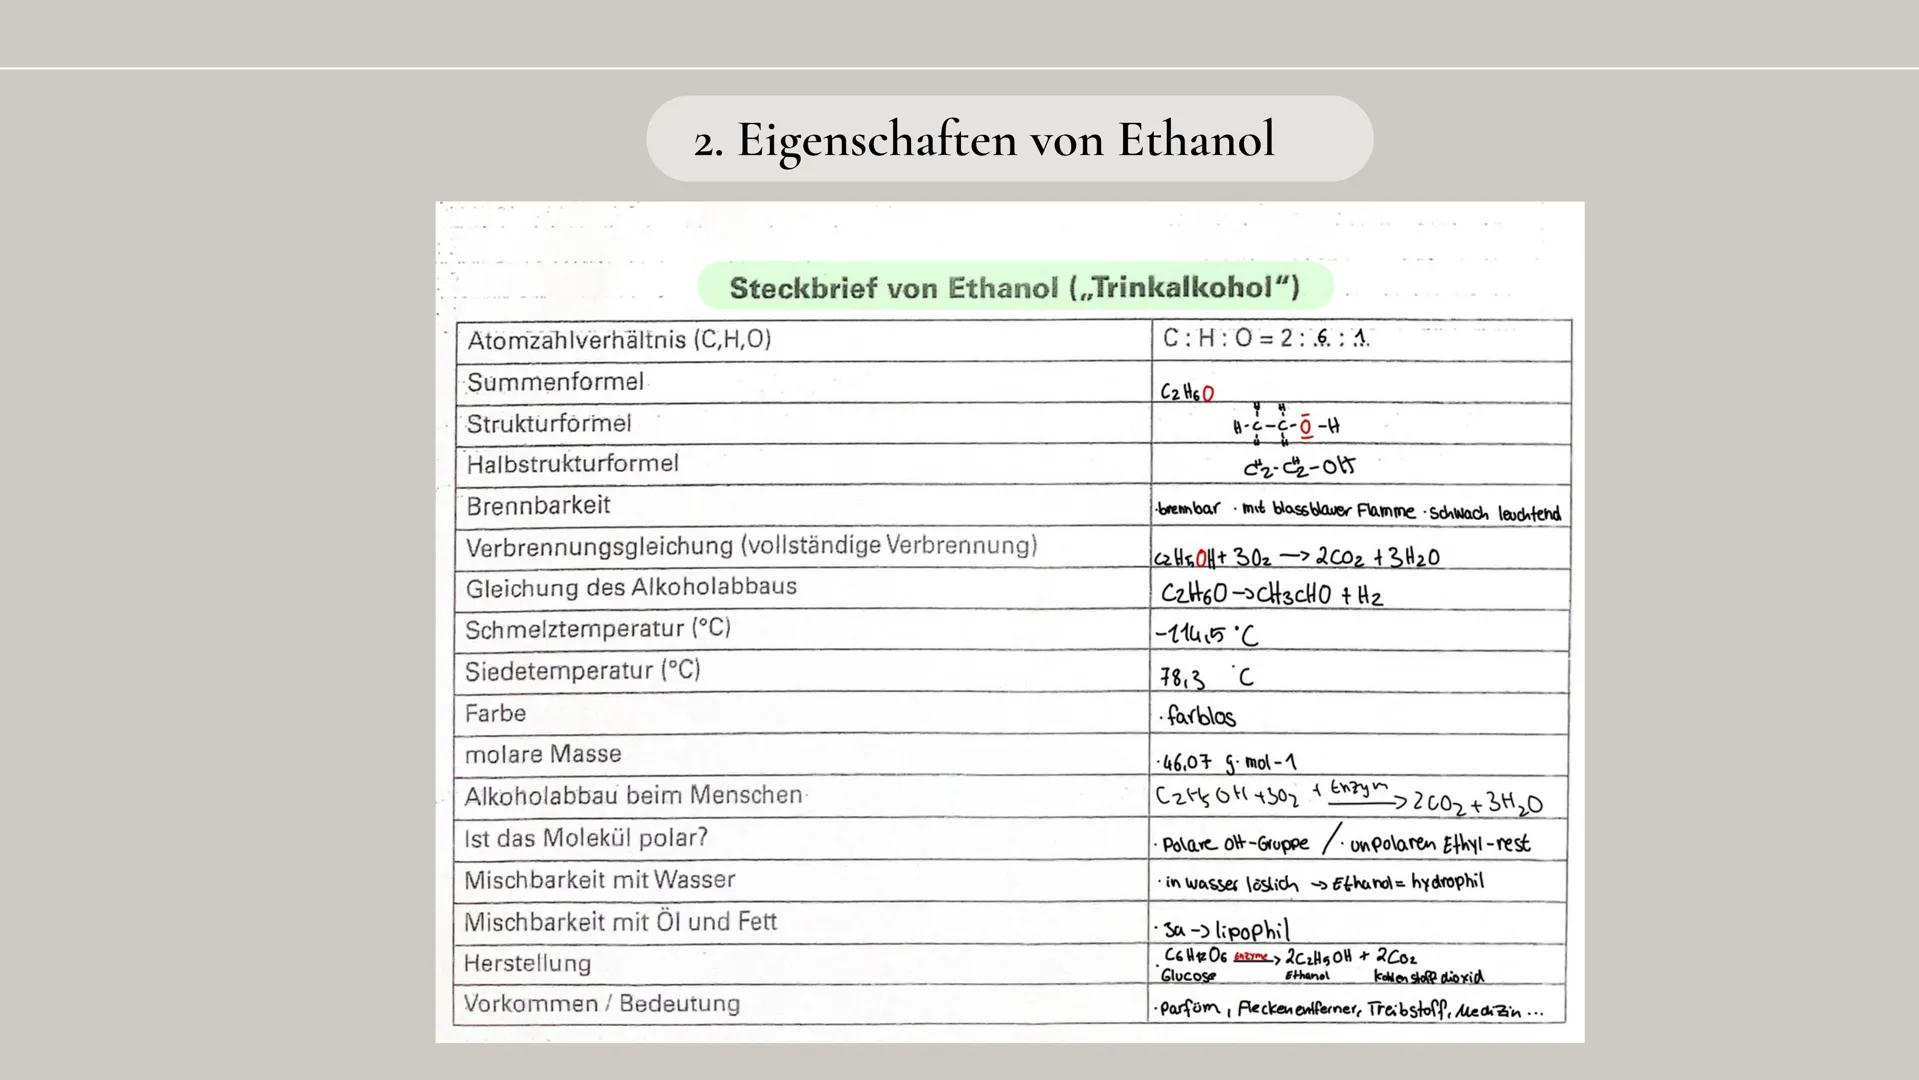 2. Eigenschaften von Ethanol
Steckbrief von Ethanol („Trinkalkohol“)
Atomzahlverhältnis (C,H,O) C : H : O = 2 : .6. : .1.
Summenformel C2H6O
Strukturformel
H H
H-C-C-O-H
H H
Halbstrukturformel CH2-CH2-OH
Brennbarkeit ·brennbar · mit blassblauer Flamme · schwach leuchtend
Verbrennungsgleichung (vollständige Verbrennung) C2H5OH + 3O2 → 2CO2 + 3H2O
Gleichung des Alkoholabbaus C2H6O → CH3CHO + H2
Schmelztemperatur (°C) -114,5 °C
Siedetemperatur (°C) 78,3 °C
Farbe · farblos
molare Masse · 46,07 g · mol-1
Alkoholabbau beim Menschen C2H5OH + 3O2 + Enzym → 2CO2 + 3H2O
Ist das Molekül polar? · Polare OH-Gruppe / · unpolaren Ethyl-rest
Mischbarkeit mit Wasser · in wasser löslich → Ethanol = hydrophil
Mischbarkeit mit Öl und Fett · Ja → lipophil
Herstellung · C6H12O6 Enzyme → 2C2H5OH + 2CO2
Glucose Ethanol Kohlenstoffdioxid
Vorkommen / Bedeutung · Parfüm, Fleckenentferner, Treibstoff, Medizin ...